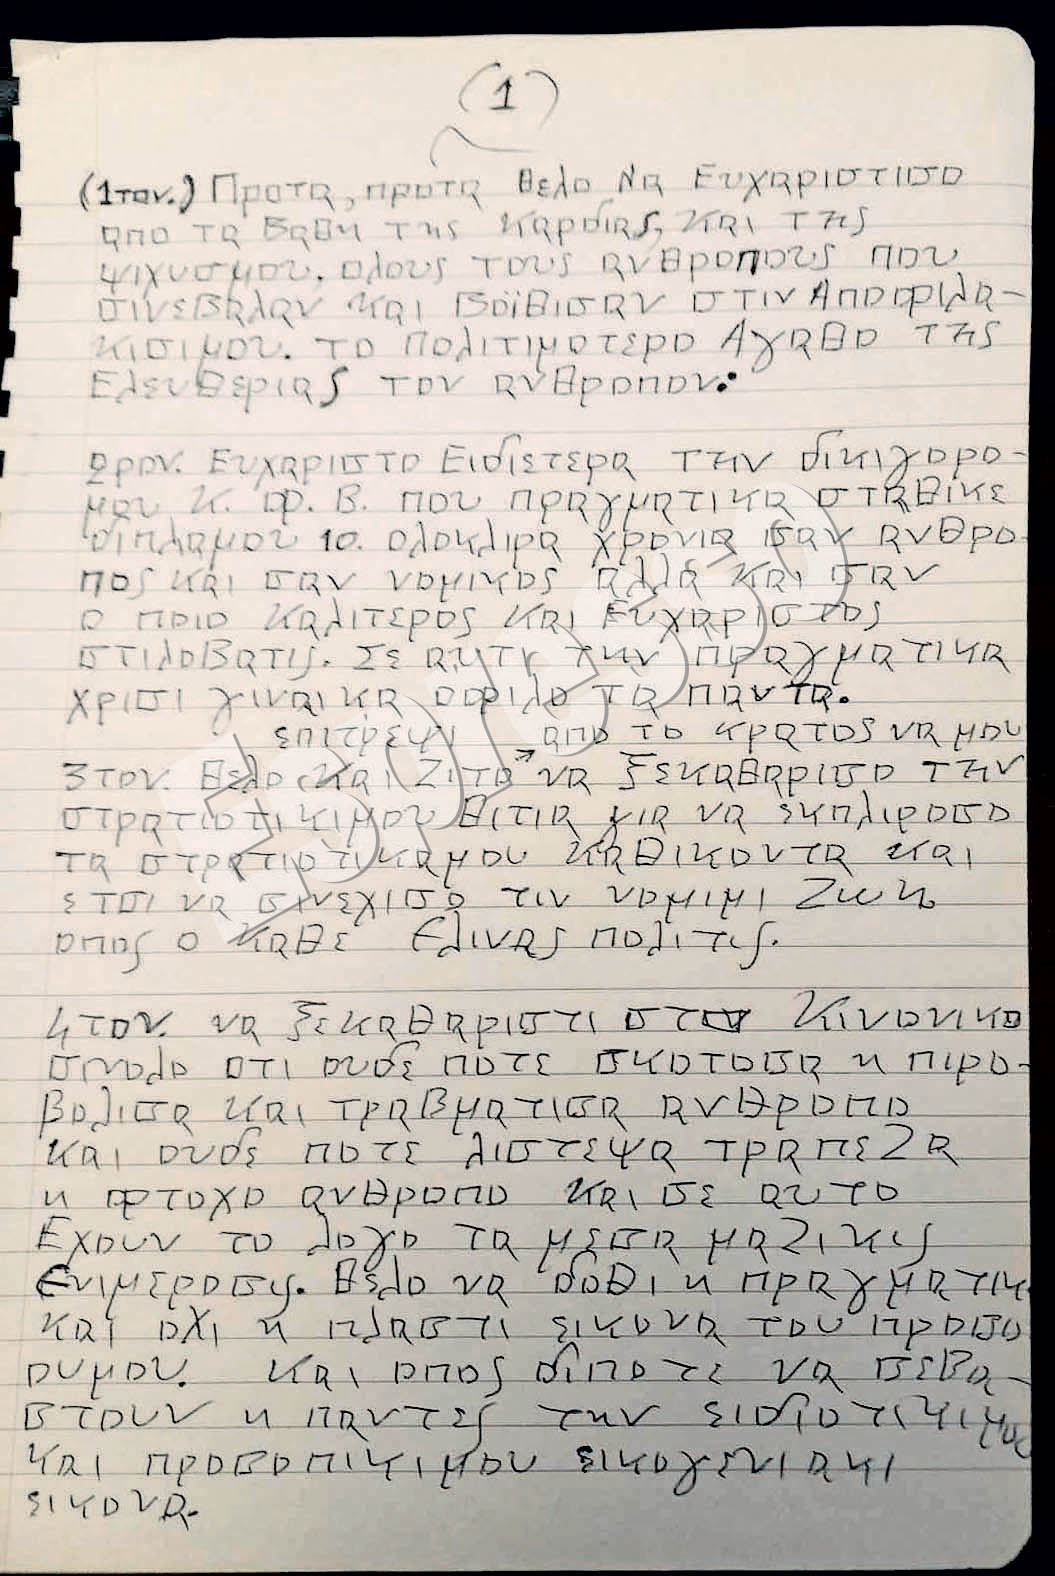 (1)
(1τον.) Προτα, προτα θελο Να Ευχαριστισο
απο τα Βαθη της Καρδιας, Και της
ψιχυσμου. ολους τους ανθροπους που
σινεβαλαν και Βοϊθισαν στιν Αποφιλα-
κισιμου. το Πολιτιμοτερο Αγαθο της
Ελευθεριας τον ανθροπον.
2ρον. Ευχαριστο Ειδιετερα την δικιγορο-
μου Κ. Φ. Β. που πραγματικα σταθικε
διπλαμου 10. ολοκλιρα χρονια σαν ανθρο-
πος και σαν νομικος αλλά και σαν
ο ποιο καλιτερος και Ευχαριστος
στιλοβατις. Σε αυτη την πραγματικα
χρισι γιναικα οφιλο τα παντα.
επιτρεψι απο το κρατος να μου
3τον. θελο και Ζιτο να ξεκαθαρισο την
στρατιοτικιμου θιτια για να εκπλιροσο
τα στρατιοτικαμου καθικοντα και
ετσι να σινεχισο τιν νομιμι Ζωη
οπος ο καθε Ελινας πολιτις.
4τον. να ξεκαθαριστι στο Κινονικο
σινολο οτι ουδε ποτε σκοτοσα η πιρο-
βολισα και τραβματισα ανθροπο
και ουδε ποτε λιστεψα τραπεΖα
η φτοχο ανθροπο και σε αυτο
Εχουν το λογο τα μεσα μαΖικις
Ενιμεροσις. θελο να δοθι η πραγματικ
και οχι η πλαστι εικονα του προσο
ουμου. και οπος διποτε να σεβα-
στουν η παντες την ειδιοτικιμας
και προσοπικιμου εικογενιακι
εικονα.
Espresso